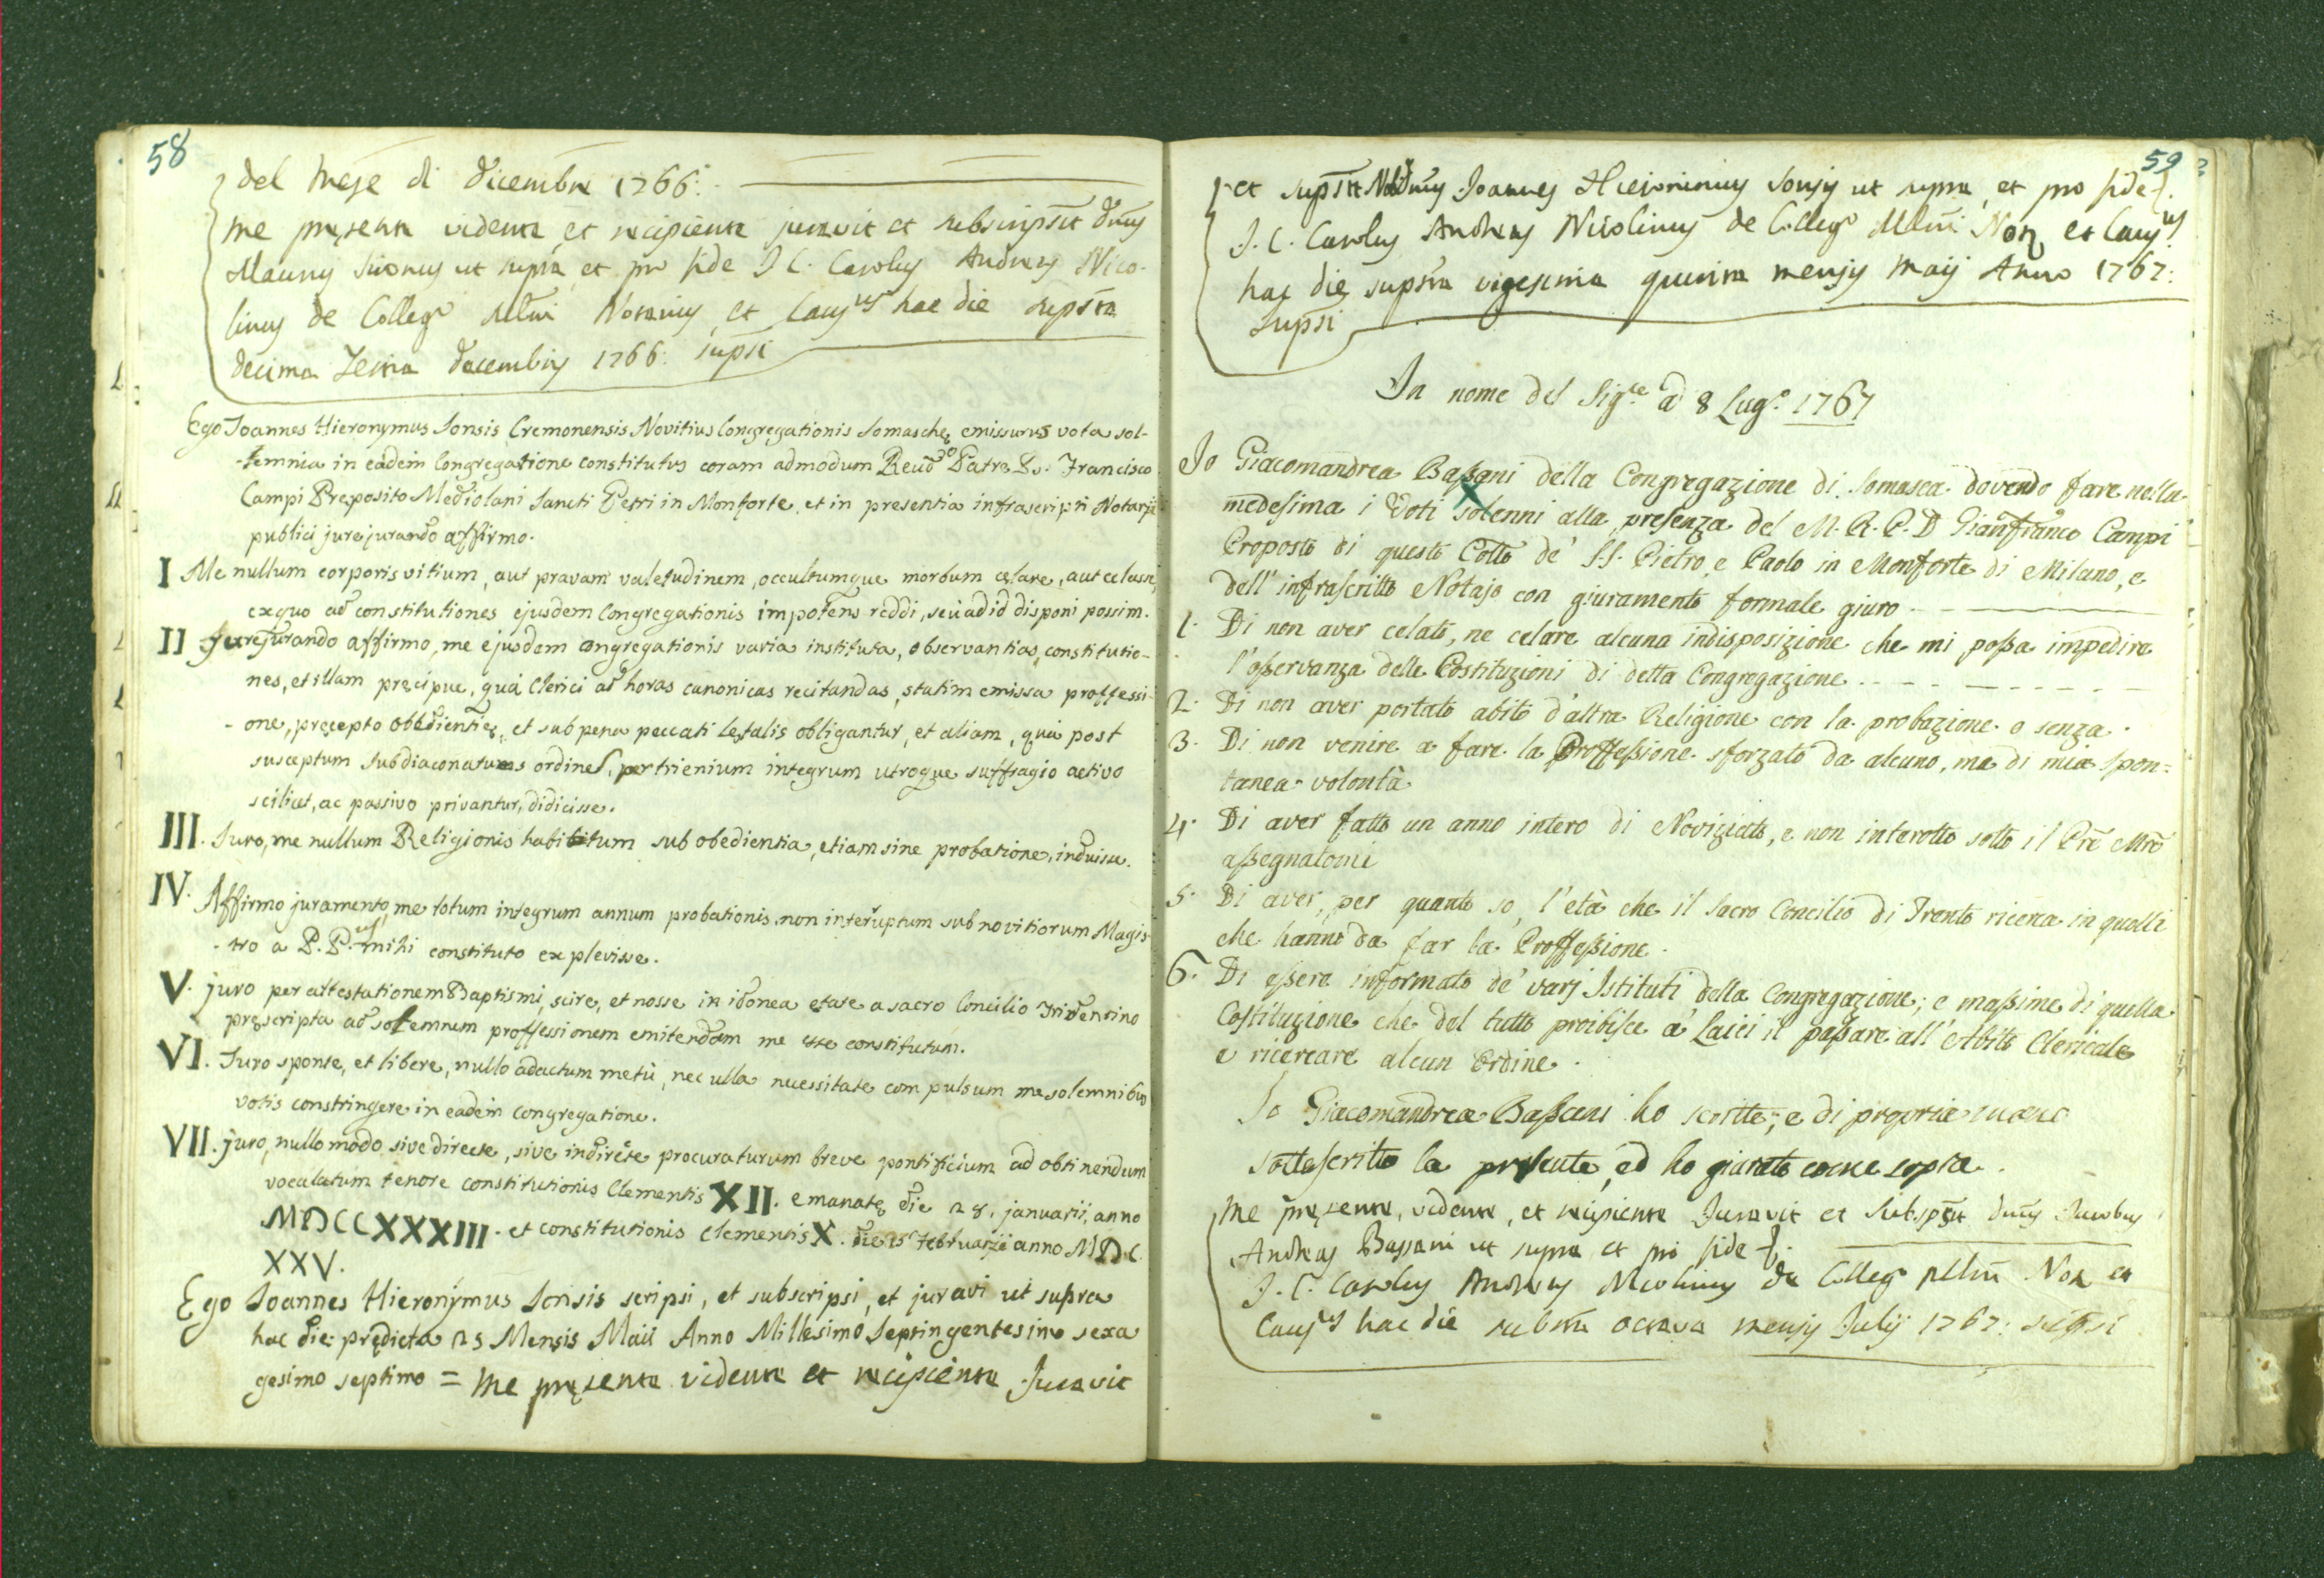 58
del mese di Dicembre 1766:
me presente vidente et recipiente juravit et subscripsit Dnus
Maurus ut supra, et pro fide J. C. Carolus Andreas Nico-
linus de Collegº Mlni Notarius, et Causus hac die supsta
decima Decembris 1766: supsi
Ego Joannes Hieronymus Sonsis Cremonensis Novitius Congregationis Somaschę, emissurus vota sol-
-lemnia in eadem Congregatione constitutus coram admodum Reudº Patre D. Francisco
Campi Pręposito Mediolani Sancti Petri in Monforte, et in presentia infrascripti Notarij
publici jurejurando affirmo.
I Me nullum corporis vitium, aut pravam valetudinem, occultumque morbum celare, aut celasse,
ex quo ad constitutiones ejusdem Congregationis impotens reddi, seu ad id disponi possim.
II Jurejurando affirmo, me ejusdem congregationis varia instituta, observantias, constitutio-
nes, et illam pręcipue, quá Clerici ad horas canonicas recitandas, statim emissa proffessi-
- one, pręcepto obbedientię, et sub pena peccati letalis obligantur, et aliam, quá post
susceptum subdiaconatus ordines, per trienium integrum utroque suffragio activo
scilicet, ac passivo privantur, didicisse.
III. Juro, me nullum Religionis habitum sub obedientia, etiam sine probatione, induisse.
IV. Affirmo juramento, me totum integrum annum probationis non interruptum sub novitiorum Magis-
- tro a P. P. mihi constituto explevisse.
V. juro per attestationem Baptismi, scire, et nosse in idonea etate a sacro Concilio Tridentino
pręscripta ad solemnem proffessionem emitendam me esse constitutum.
VI. Juro sponte, et libere, nullo adactum metù, nec ulla necessitate compulsum me solemnibus
votis constringere in eadem congregatione.
VII. juro, nullo modo sive directe, sive indirecte procuraturum breve pontificium ad obtinendum
vocalatum tenore constitutionis Clementis XII. emanatę die 28. januarii, anno
MDCCXXXIII. et constitutionis Clementis X. die 15 Februarii anno MDC
XXV.
Ego Joannes Hieronymus Sonsis scripsi, et subscripsi, et juravi ut supra
hac die prędicta 25 Mensis Maii Anno Millesimo Septingentesimo sexa
gesimo septimo = me pręsente vidente et recipiente Juravit
59
et supsit Dnus Joannes Hieronimus Sonsis ut supra, et pro fide
J. C. Carolus Andreas Nicolinus de Collegº Mlni Not, et Causus
hac die supsta vigesima quinta mensis Maij Anno 1767:
supsi
In nome del Sigre a 8 Lugº. 1767
Io Giacomandrea Baßani della Congregazione di Somasca dovendo fare nella
medesima i Voti solenni alla presenza del M. R. P. D Gianfranco Campi
Proposto di questo Collo de' SS. Pietro, e Paolo in Monforte di Milano, e
dell'infrascritto Notajo con giuramento formale giuro
1. Di non aver celato, ne celare alcuna indisposizione che mi poßa impedire
l'oßervanza delle Costituzioni di detta Congregazione
2. Di non aver portato abito d'altra Religione con la probazione o senza.
3. Di non venire a fare la Proffeßione sforzato da alcuno, ma di mia spon=
tanea volontà
4. Di aver fatto un anno intero di Noviziato, e non interotto sotto il Pre Mro
aßegnatomi
5. Di aver, per quanto so, l'età che il Sacro Concilio di Trento ricerca in quelli
che hanno da far la Proffeßione.
6. Di eßere informato de' varj Istituti della Congregazione; e maßime di quella
Costituzione che del tutto proibisce a' Laici il paßare all'Abito Clericale
e ricercare alcun Ordine.
Io Giacomandrea Baßani ho scritto, e di propria mano
sottoscritto la presente, ed ho giurato come sopra.
Me pręsente, vidente, et recipiente Juravit et subspsit Dnus Jacobus
Andreas Bassani ut supra et pro fide
J. C. Carolus Andreas Nicolinus de Collegº Mlni Not et
Causus hac die octava mensis Julij 1767: supsi